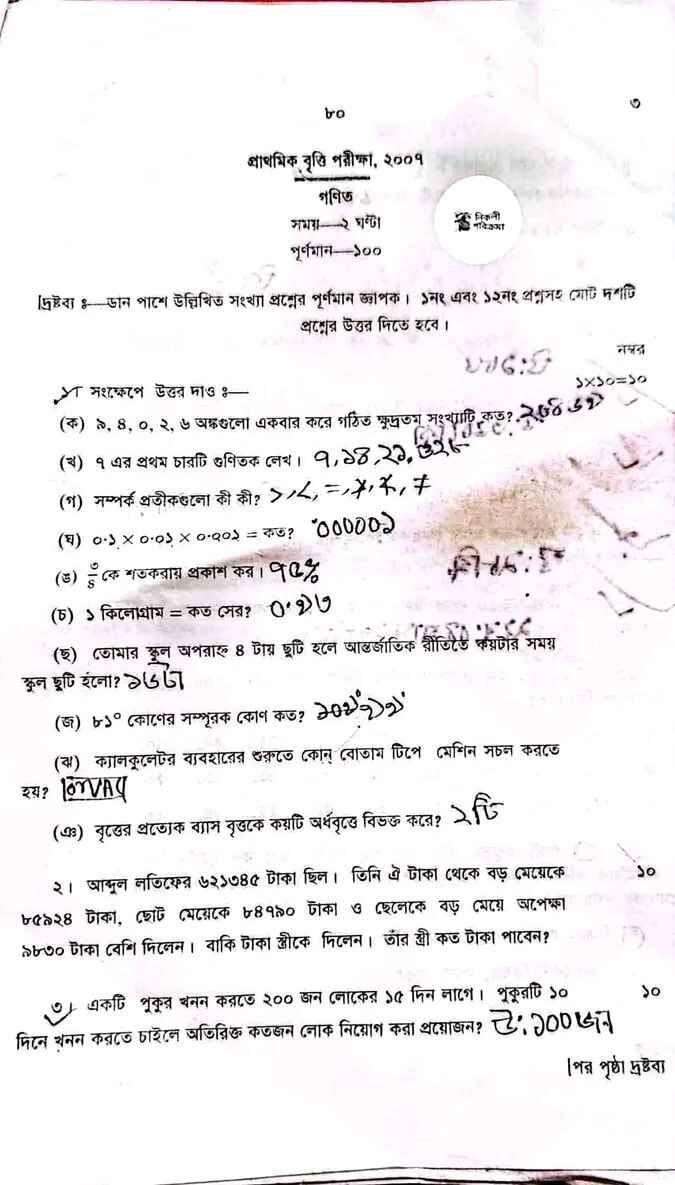 ৮০
৩
প্রাথমিক বৃত্তি পরীক্ষা, ২০০৭
গণিত
সময়—২ ঘণ্টা
পূর্ণমান—১০০
নিকলী
পরিক্রমা
[দ্রষ্টব্য ঃ—ডান পাশে উল্লিখিত সংখ্যা প্রশ্নের পূর্ণমান জ্ঞাপক। ১নং এবং ১২নং প্রশ্নসহ মোট দশটি
প্রশ্নের উত্তর দিতে হবে।
নম্বর
১। সংক্ষেপে উত্তর দাও ঃ—
১×১০=১০
(ক) ৯, ৪, ০, ২, ৬ অঙ্কগুলো একবার করে গঠিত ক্ষুদ্রতম সংখ্যাটি কত?
(খ) ৭ এর প্রথম চারটি গুণিতক লেখ। ৭, ১৪, ২১, ২৮
(গ) সম্পর্ক প্রতীকগুলো কী কী? >, <, =, ≯, ≮, ≠
(ঘ) ০·১ × ০·০১ × ০·০০১ = কত? ·০০০০০১
(ঙ) ৩/৪ কে শতকরায় প্রকাশ কর। ৭৫%
(চ) ১ কিলোগ্রাম = কত সের?
(ছ) তোমার স্কুল অপরাহ্ন ৪ টায় ছুটি হলে আন্তর্জাতিক রীতিতে কয়টার সময়
স্কুল ছুটি হলো? ১৬টা
(জ) ৮১° কোণের সম্পূরক কোণ কত?
(ঝ) ক্যালকুলেটর ব্যবহারের শুরুতে কোন্ বোতাম টিপে মেশিন সচল করতে
হয়?
(ঞ) বৃত্তের প্রত্যেক ব্যাস বৃত্তকে কয়টি অর্ধবৃত্তে বিভক্ত করে? ২টি
২। আব্দুল লতিফের ৬২১৩৪৫ টাকা ছিল। তিনি ঐ টাকা থেকে বড় মেয়েকে ১০
৮৫৯২৪ টাকা, ছোট মেয়েকে ৮৪৭৯০ টাকা ও ছেলেকে বড় মেয়ে অপেক্ষা
৯৮৩০ টাকা বেশি দিলেন। বাকি টাকা স্ত্রীকে দিলেন। তাঁর স্ত্রী কত টাকা পাবেন?
৩। একটি পুকুর খনন করতে ২০০ জন লোকের ১৫ দিন লাগে। পুকুরটি ১০ ১০
দিনে খনন করতে চাইলে অতিরিক্ত কতজন লোক নিয়োগ করা প্রয়োজন? উ: ১০০ জন
[পর পৃষ্ঠা দ্রষ্টব্য